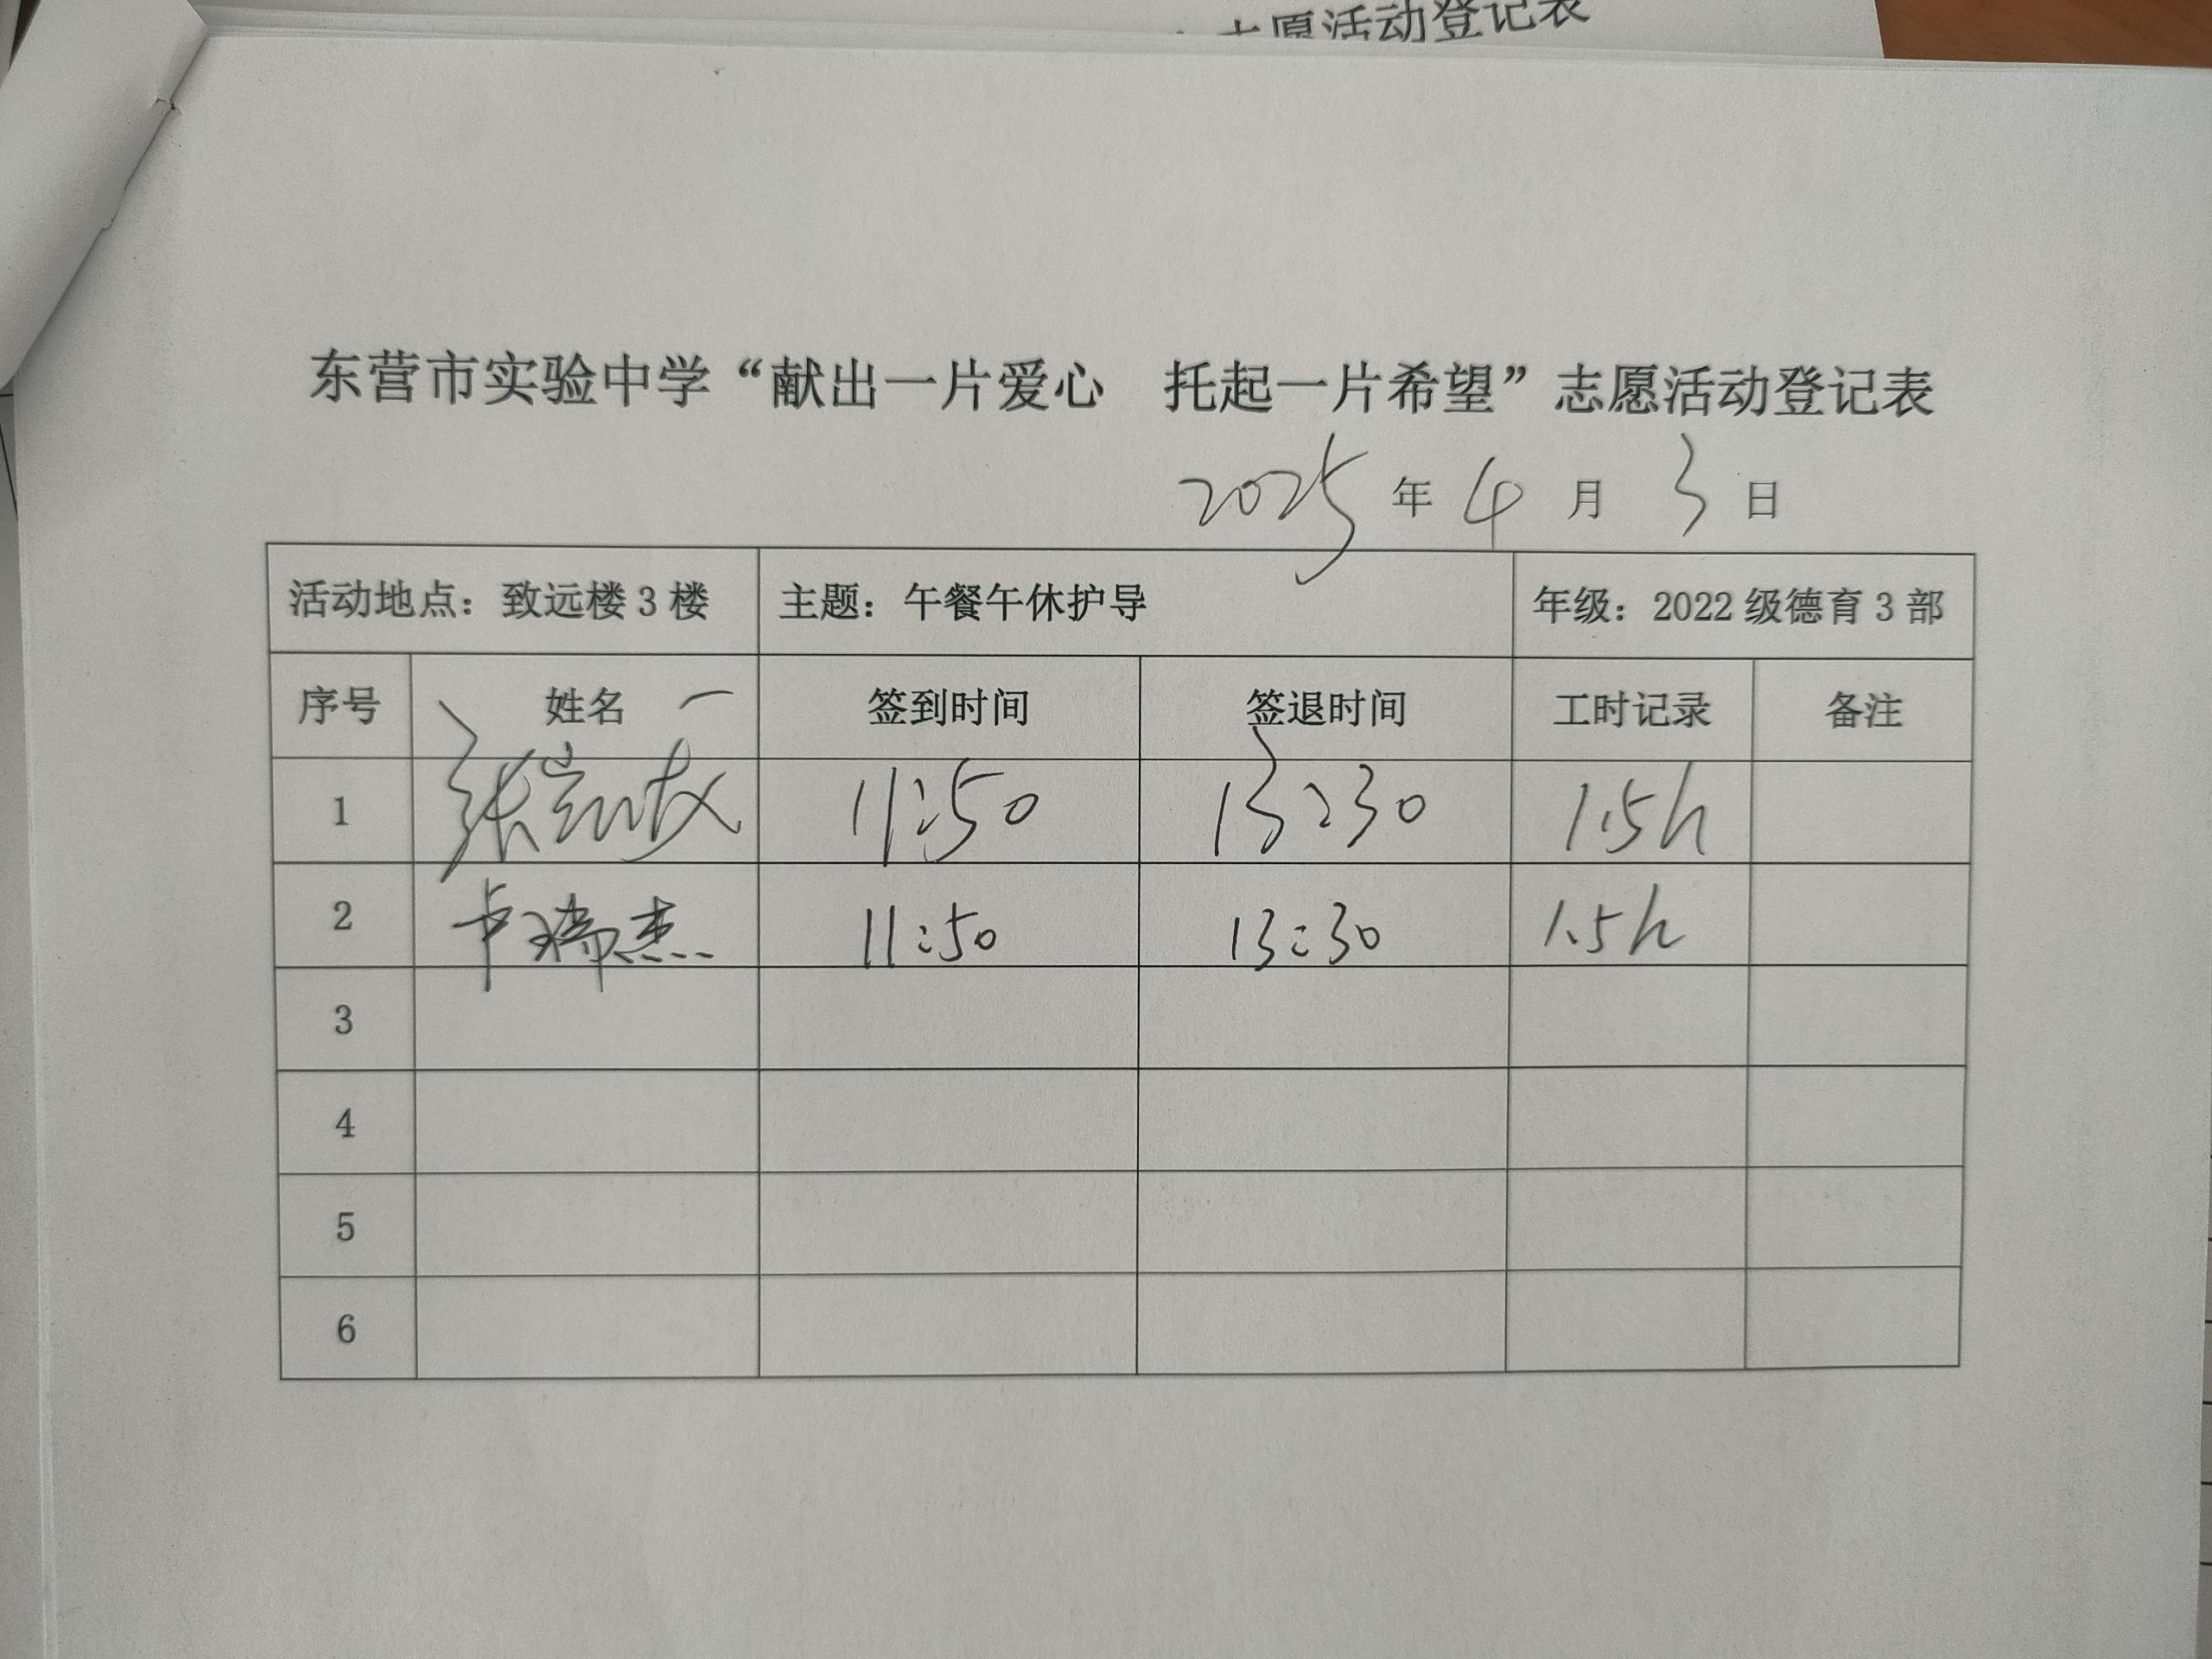 志愿活动登记表
东营市实验中学“献出一片爱心 托起一片希望”志愿活动登记表
2025 年 4 月 3 日
活动地点：致远楼 3 楼 主题：午餐午休护导 年级：2022 级德育 3 部
序号 姓名 签到时间 签退时间 工时记录 备注
1 张 11:50 13:30 1.5h
2 卢瑞杰 11:50 13:30 1.5h
3
4
5
6